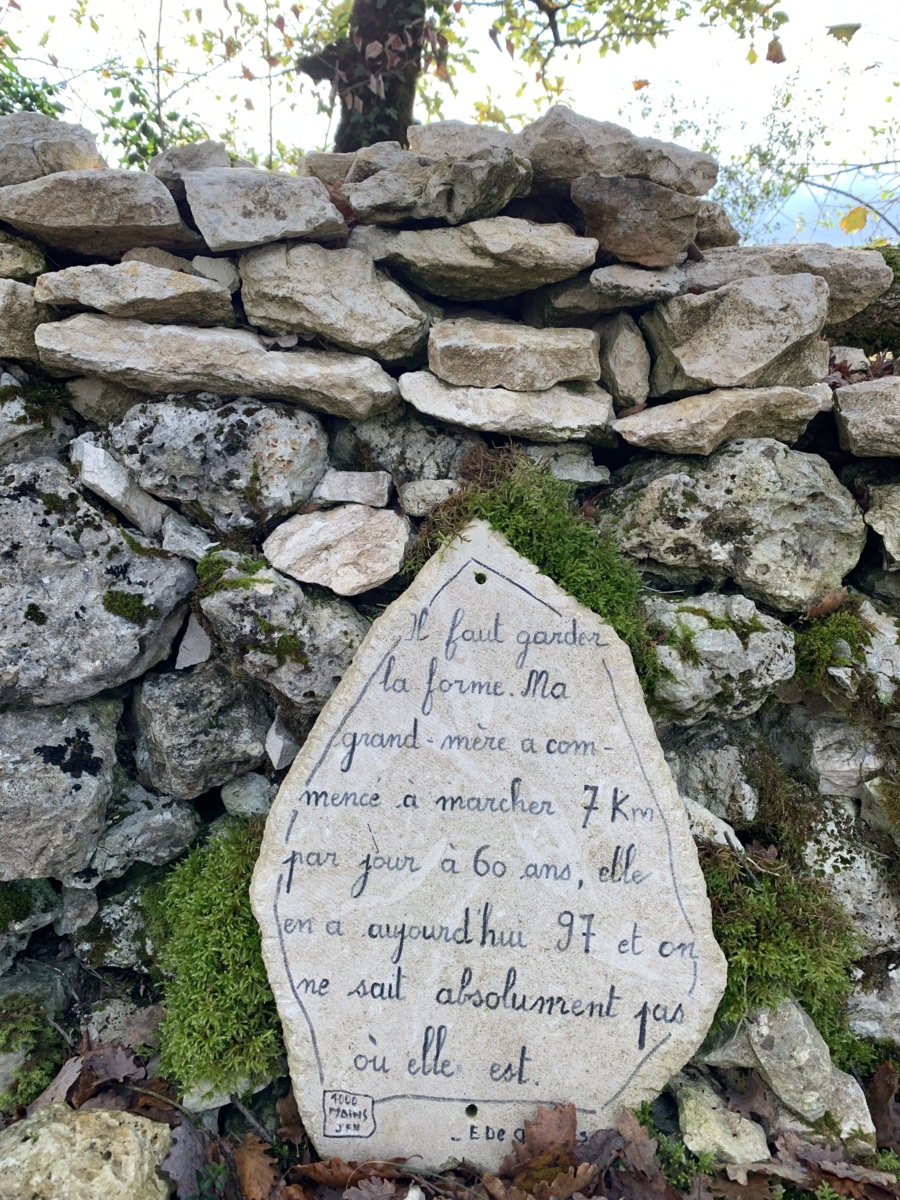 Il faut garder
la forme. Ma
grand-mère a com-
mencé à marcher 7 Km
par jour à 60 ans, elle
en a aujourd'hui 97 et on
ne sait absolument pas
où elle est.
1000
MAINS